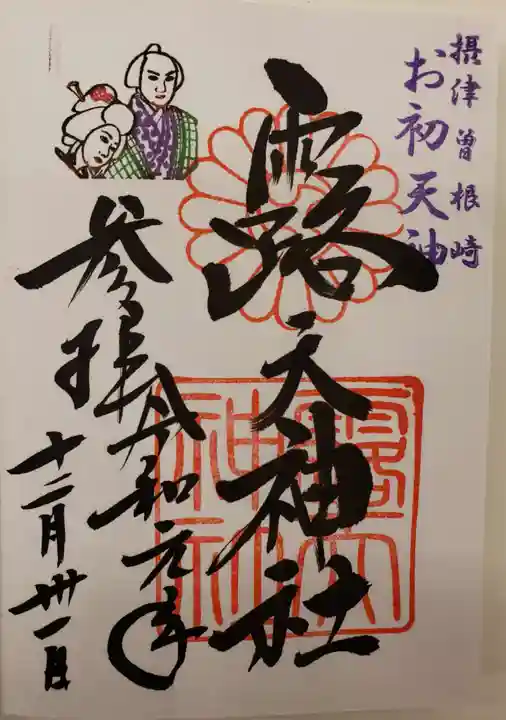 摂津曽根崎
お初天神
露天神社
参拝令和元年
十二月卅一日